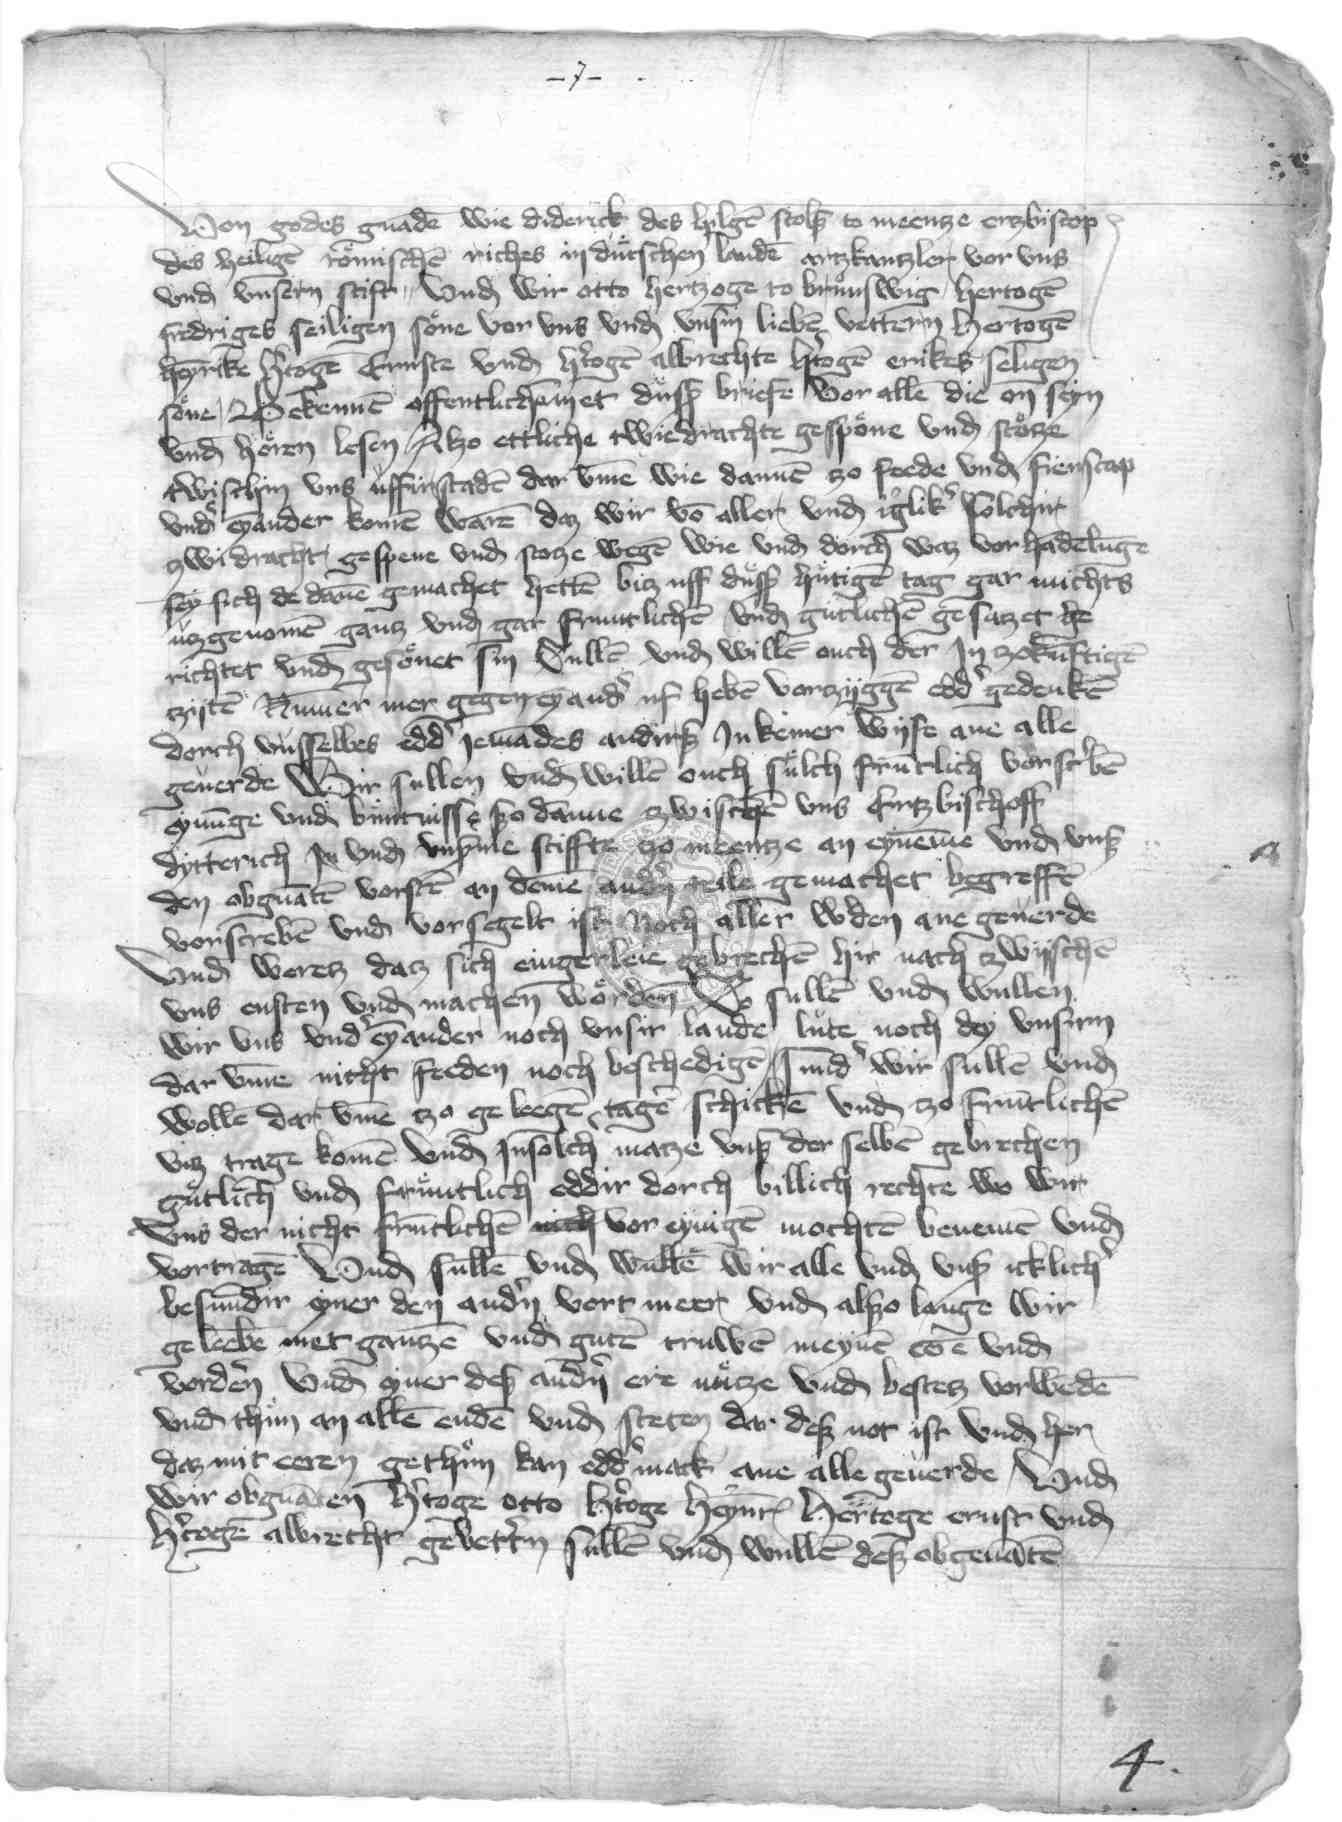 -7-
Von godes gnade wie diderick des hilgē stolß to meentze ertzbiscop
des heiligē römischē riches in dütschen landē artzkantzler vor vns
vnd vnsern stift Vnd wir otto hertzoge to brunswig hertogē
fredriges seiligen söne vor vns vnd vnsin liebē vettern hertogē
heynrike h'togē Ernste vnd h'togē albrechte h'togē erikes seligen
söne Bekennē offentlichē met dussß briefe vor allē die on seyn
vnd hören lesen Alzo ettliche twiedrachte gespöne vnd stösze
twischin vns uffirstadē dar vme wie dannē zo feede vnd fienscap
vnd' eyander komē warē daz wir vō aller vnd iglik' solchir
zwidracht gespene vnd stosze wegē wie vnd dorch waz vor hādelunge
sey sich de danē gemachet hettē biz uff dussß hütigē tag gar nichts
uzgenomē gantz vnd gar fruntlichē vnd gutlichē gesatzet he
richtet vnd gesönet sin Sullē vnd willē ouch der In zokunftigē
zijtē Nūmer mer gegen eyand' uf hebē vorzyggē edd' gedenkē
dorch vnsselbes edd' Jemādes andirß In keiner wijse ane alle
geuerde Wir sullen vnd willē ouch sulch früntlich vorscr'bē
eynūge vnd büntnisse szo danne zwischē vns Ertzbischoff
dytterich vnd vnßme stiffte zo meentze an eyneme vnd vnß
den obgnātē vorstē an demē and'n teile gemachet begreffē
vorscrebē vnd vorsegelt ist noch aller w'den ane geuerde
Vnd werez daz sich eingerleie gebrechē hir nach zwijschē
vns ensten vnd machen wörden So sullē vnd wullen
wir vns vnd' eyander noch vnsir lande lute noch dey vnsirn
dar vme nicht feeden noch beschedigē Sund' wir sullē vnd
wolle dar vme zo geleegē tagē schickē vnd zo fruntlichē
vz trage komē vnd Insolch' matze vnß der selbē gebrechen
gütlich vnd früntlich eddir dorch billich rechte wo wir
vns der nicht früntlichē vor eynigē mochtē benemē vnd
vortragē Vnd sullē vnd wullē wir alle vnd vnß icklich'
besundir eyner den and'n vort meer vnd alszo lange wir
geleebē met gantzē vnd gutē truwē meynē eōē vnd
vord'n vnd eyner deß and'n ere nütze vnd bestez vorwedē
vnd thun an allē endē vnd steten dar deß not ist vnd her
daz mit eeren gethün kan edd' mack ane alle geuerde Vnd
wir obgnāten h'toge otto h'toge heynr' hertoge ernst vnd
h'togē albrecht gevett'n sullē vnd wullē deß obgenātē
4.